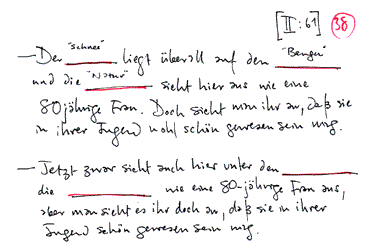 [II:61] 38
"Schnee" "Bergen"
— Der ______ liegt überall auf den ______
"Natur"
und die ______ sieht hier aus wie eine
80jährige Frau. Doch sieht man ihr an, daß sie
in ihrer Jugend wohl schön gewesen sein mag.
— Jetzt zwar sieht auch hier unter den ______
die ______ wie eine 80-jährige Frau aus,
aber man sieht es ihr doch an, daß sie in ihrer
Jugend schön gewesen sein mag.